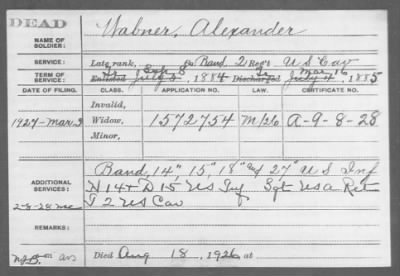 DEAD
NAME OF SOLDIER:
Wabner, Alexander
SERVICE:
Late rank, Co. Band, 2 Reg't U S Cav
TERM OF SERVICE:
Enlisted 1884 Discharged 1885
DATE OF FILING. CLASS. APPLICATION NO. LAW. CERTIFICATE NO.
Invalid,
1927-Mar 3 Widow, 1572754 M/26 A-9-8-28
Minor,
ADDITIONAL SERVICES:
Band, 14", 15", 18" and 27" U S Inf
H 14 & D 15 US Inf Sgt USA Ret
F 2 US Cav
2-8-28
REMARKS:
Died Aug 18, 1926 at